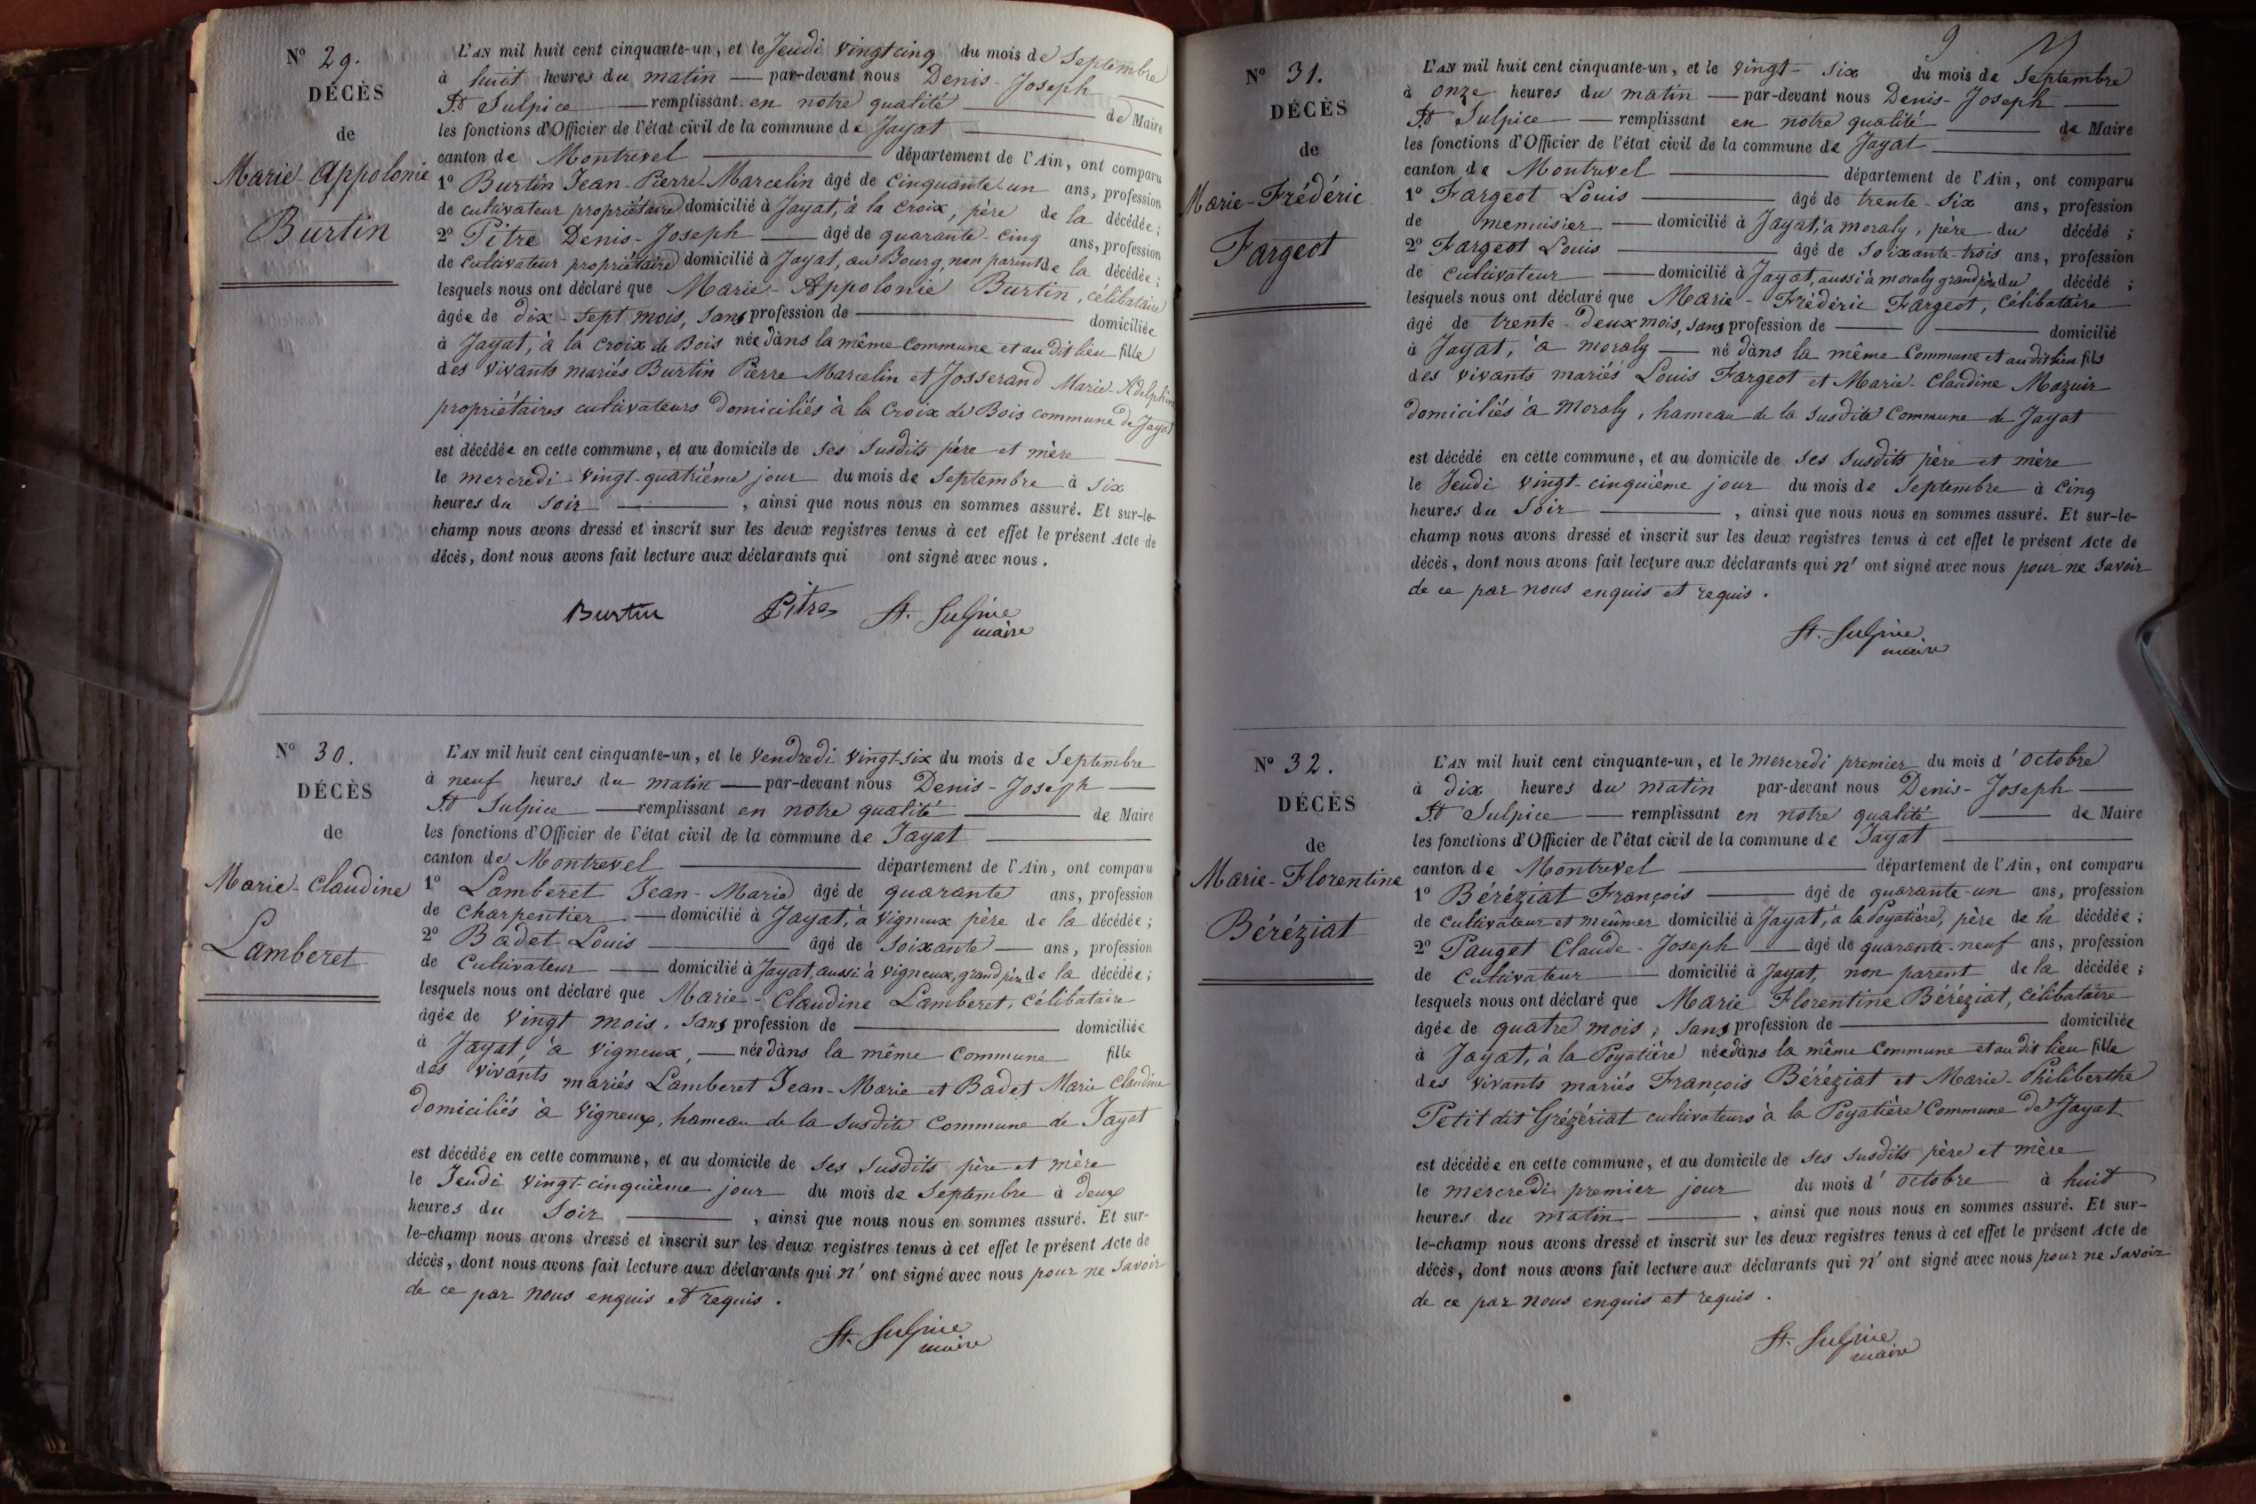 Nº 29.
DÉCÈS
de
Marie Appolonie
Burtin
L'AN mil huit cent cinquante-un, et le Jeudi vingt cinq du mois de Septembre
à huit heures du matin — par-devant nous Denis-Joseph —
St Sulpice — remplissant en notre qualité — de Maire
les fonctions d'Officier de l'état civil de la commune de Jayat —
canton de Montrevel — département de l'Ain, ont comparu
1º Burtin Jean-Pierre-Marcelin âgé de cinquante-un ans, profession
de cultivateur propriétaire domicilié à Jayat, à la Croix, père de la décédée;
2º Pitre Denis-Joseph — âgé de quarante-cinq ans, profession
de cultivateur propriétaire domicilié à Jayat, au Bourg, non parent de la décédée;
lesquels nous ont déclaré que Marie-Appolonie Burtin, célibataire
âgée de dix-sept mois, sans profession de — domiciliée
à Jayat, à la Croix de Bois née dans la même commune et au dit lieu fille
des vivants mariés Burtin Pierre Marcelin et Josserand Marie-Adelphine
propriétaires cultivateurs domiciliés à la Croix de Bois commune de Jayat
est décédée en cette commune, et au domicile de ses susdits père et mère —
le mercredi vingt-quatrième jour du mois de Septembre à six
heures du soir —, ainsi que nous nous en sommes assuré. Et sur-le-
champ nous avons dressé et inscrit sur les deux registres tenus à cet effet le présent Acte de
décès, dont nous avons fait lecture aux déclarants qui ont signé avec nous.
Burtin Pitre St. Sulpice
maire
Nº 30.
DÉCÈS
de
Marie-Claudine
Lamberet
L'AN mil huit cent cinquante-un, et le vendredi vingt-six du mois de Septembre
à neuf heures du matin — par-devant nous Denis-Joseph —
St Sulpice — remplissant en notre qualité — de Maire
les fonctions d'Officier de l'état civil de la commune de Jayat —
canton de Montrevel — département de l'Ain, ont comparu
1º Lamberet Jean-Marie âgé de quarante ans, profession
de charpentier — domicilié à Jayat, à Vigneux père de la décédée;
2º Badet Louis — âgé de soixante — ans, profession
de cultivateur — domicilié à Jayat, aussi à Vigneux, grand père de la décédée;
lesquels nous ont déclaré que Marie-Claudine Lamberet, célibataire
âgée de vingt mois, sans profession de — domiciliée
à Jayat, à Vigneux, — née dans la même commune fille
des vivants mariés Lamberet Jean-Marie et Badet Marie Claudine
domiciliés à Vigneux, hameau de la susdite commune de Jayat
est décédée en cette commune, et au domicile de ses susdits père et mère
le Jeudi vingt-cinquième jour du mois de Septembre à deux
heures du soir —, ainsi que nous nous en sommes assuré. Et sur-
le-champ nous avons dressé et inscrit sur les deux registres tenus à cet effet le présent Acte de
décès, dont nous avons fait lecture aux déclarants qui n' ont signé avec nous pour ne savoir
de ce par nous enquis et requis.
St. Sulpice
maire
9
Nº 31.
DÉCÈS
de
Marie-Frédéric
Fargeot
L'AN mil huit cent cinquante-un, et le vingt-six du mois de Septembre
à onze heures du matin — par-devant nous Denis-Joseph —
St Sulpice — remplissant en notre qualité — de Maire
les fonctions d'Officier de l'état civil de la commune de Jayat —
canton de Montrevel — département de l'Ain, ont comparu
1º Fargeot Louis — âgé de trente-six ans, profession
de menuisier — domicilié à Jayat, à moraly, père du décédé;
2º Fargeot Louis — âgé de soixante-trois ans, profession
de cultivateur — domicilié à Jayat, aussi à moraly grand père du décédé;
lesquels nous ont déclaré que Marie-Frédéric Fargeot, célibataire
âgé de trente-deux mois, sans profession de — domicilié
à Jayat, à moraly — né dans la même commune et au dit lieu fils
des vivants mariés Louis Fargeot et Marie-Claudine Mazuir
domiciliés à Moraly, hameau de la susdite commune de Jayat
est décédé en cette commune, et au domicile de ses susdits père et mère
le Jeudi vingt-cinquième jour du mois de Septembre à cinq
heures du soir —, ainsi que nous nous en sommes assuré. Et sur-le-
champ nous avons dressé et inscrit sur les deux registres tenus à cet effet le présent Acte de
décès, dont nous avons fait lecture aux déclarants qui n' ont signé avec nous pour ne savoir
de ce par nous enquis et requis.
St. Sulpice
maire
Nº 32.
DÉCÈS
de
Marie-Florentine
Béréziat
L'AN mil huit cent cinquante-un, et le mercredi premier du mois d'octobre
à dix heures du matin par-devant nous Denis-Joseph —
St Sulpice — remplissant en notre qualité — de Maire
les fonctions d'Officier de l'état civil de la commune de Jayat —
canton de Montrevel — département de l'Ain, ont comparu
1º Béréziat François — âgé de quarante-un ans, profession
de cultivateur et meûnier domicilié à Jayat, à la Poyatière, père de la décédée;
2º Pauget Claude-Joseph — âgé de quarante-neuf ans, profession
de cultivateur — domicilié à Jayat, non parent de la décédée;
lesquels nous ont déclaré que Marie Florentine Béréziat, célibataire
âgée de quatre mois, sans profession de — domiciliée
à Jayat, à la Poyatière née dans la même commune et au dit lieu fille
des vivants mariés François Béréziat et Marie-Philiberthe
Petit dit Grézériat cultivateurs à la Poyatière commune de Jayat
est décédée en cette commune, et au domicile de ses susdits père et mère
le mercredi premier jour du mois d'octobre à huit
heures du matin —, ainsi que nous nous en sommes assuré. Et sur-
le-champ nous avons dressé et inscrit sur les deux registres tenus à cet effet le présent Acte de
décès, dont nous avons fait lecture aux déclarants qui n' ont signé avec nous pour ne savoir
de ce par nous enquis et requis.
St. Sulpice
maire